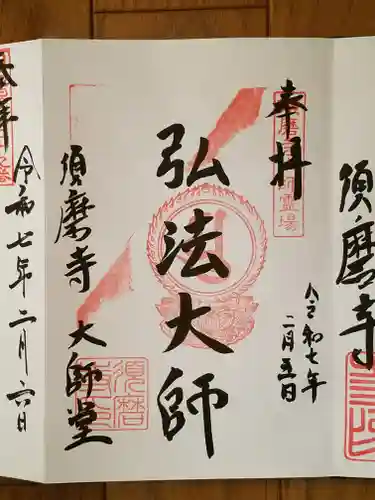 須磨寺
奉拝
令和七年
二月五日
弘法大師
須磨寺 大師堂
須磨
令和七年二月六日